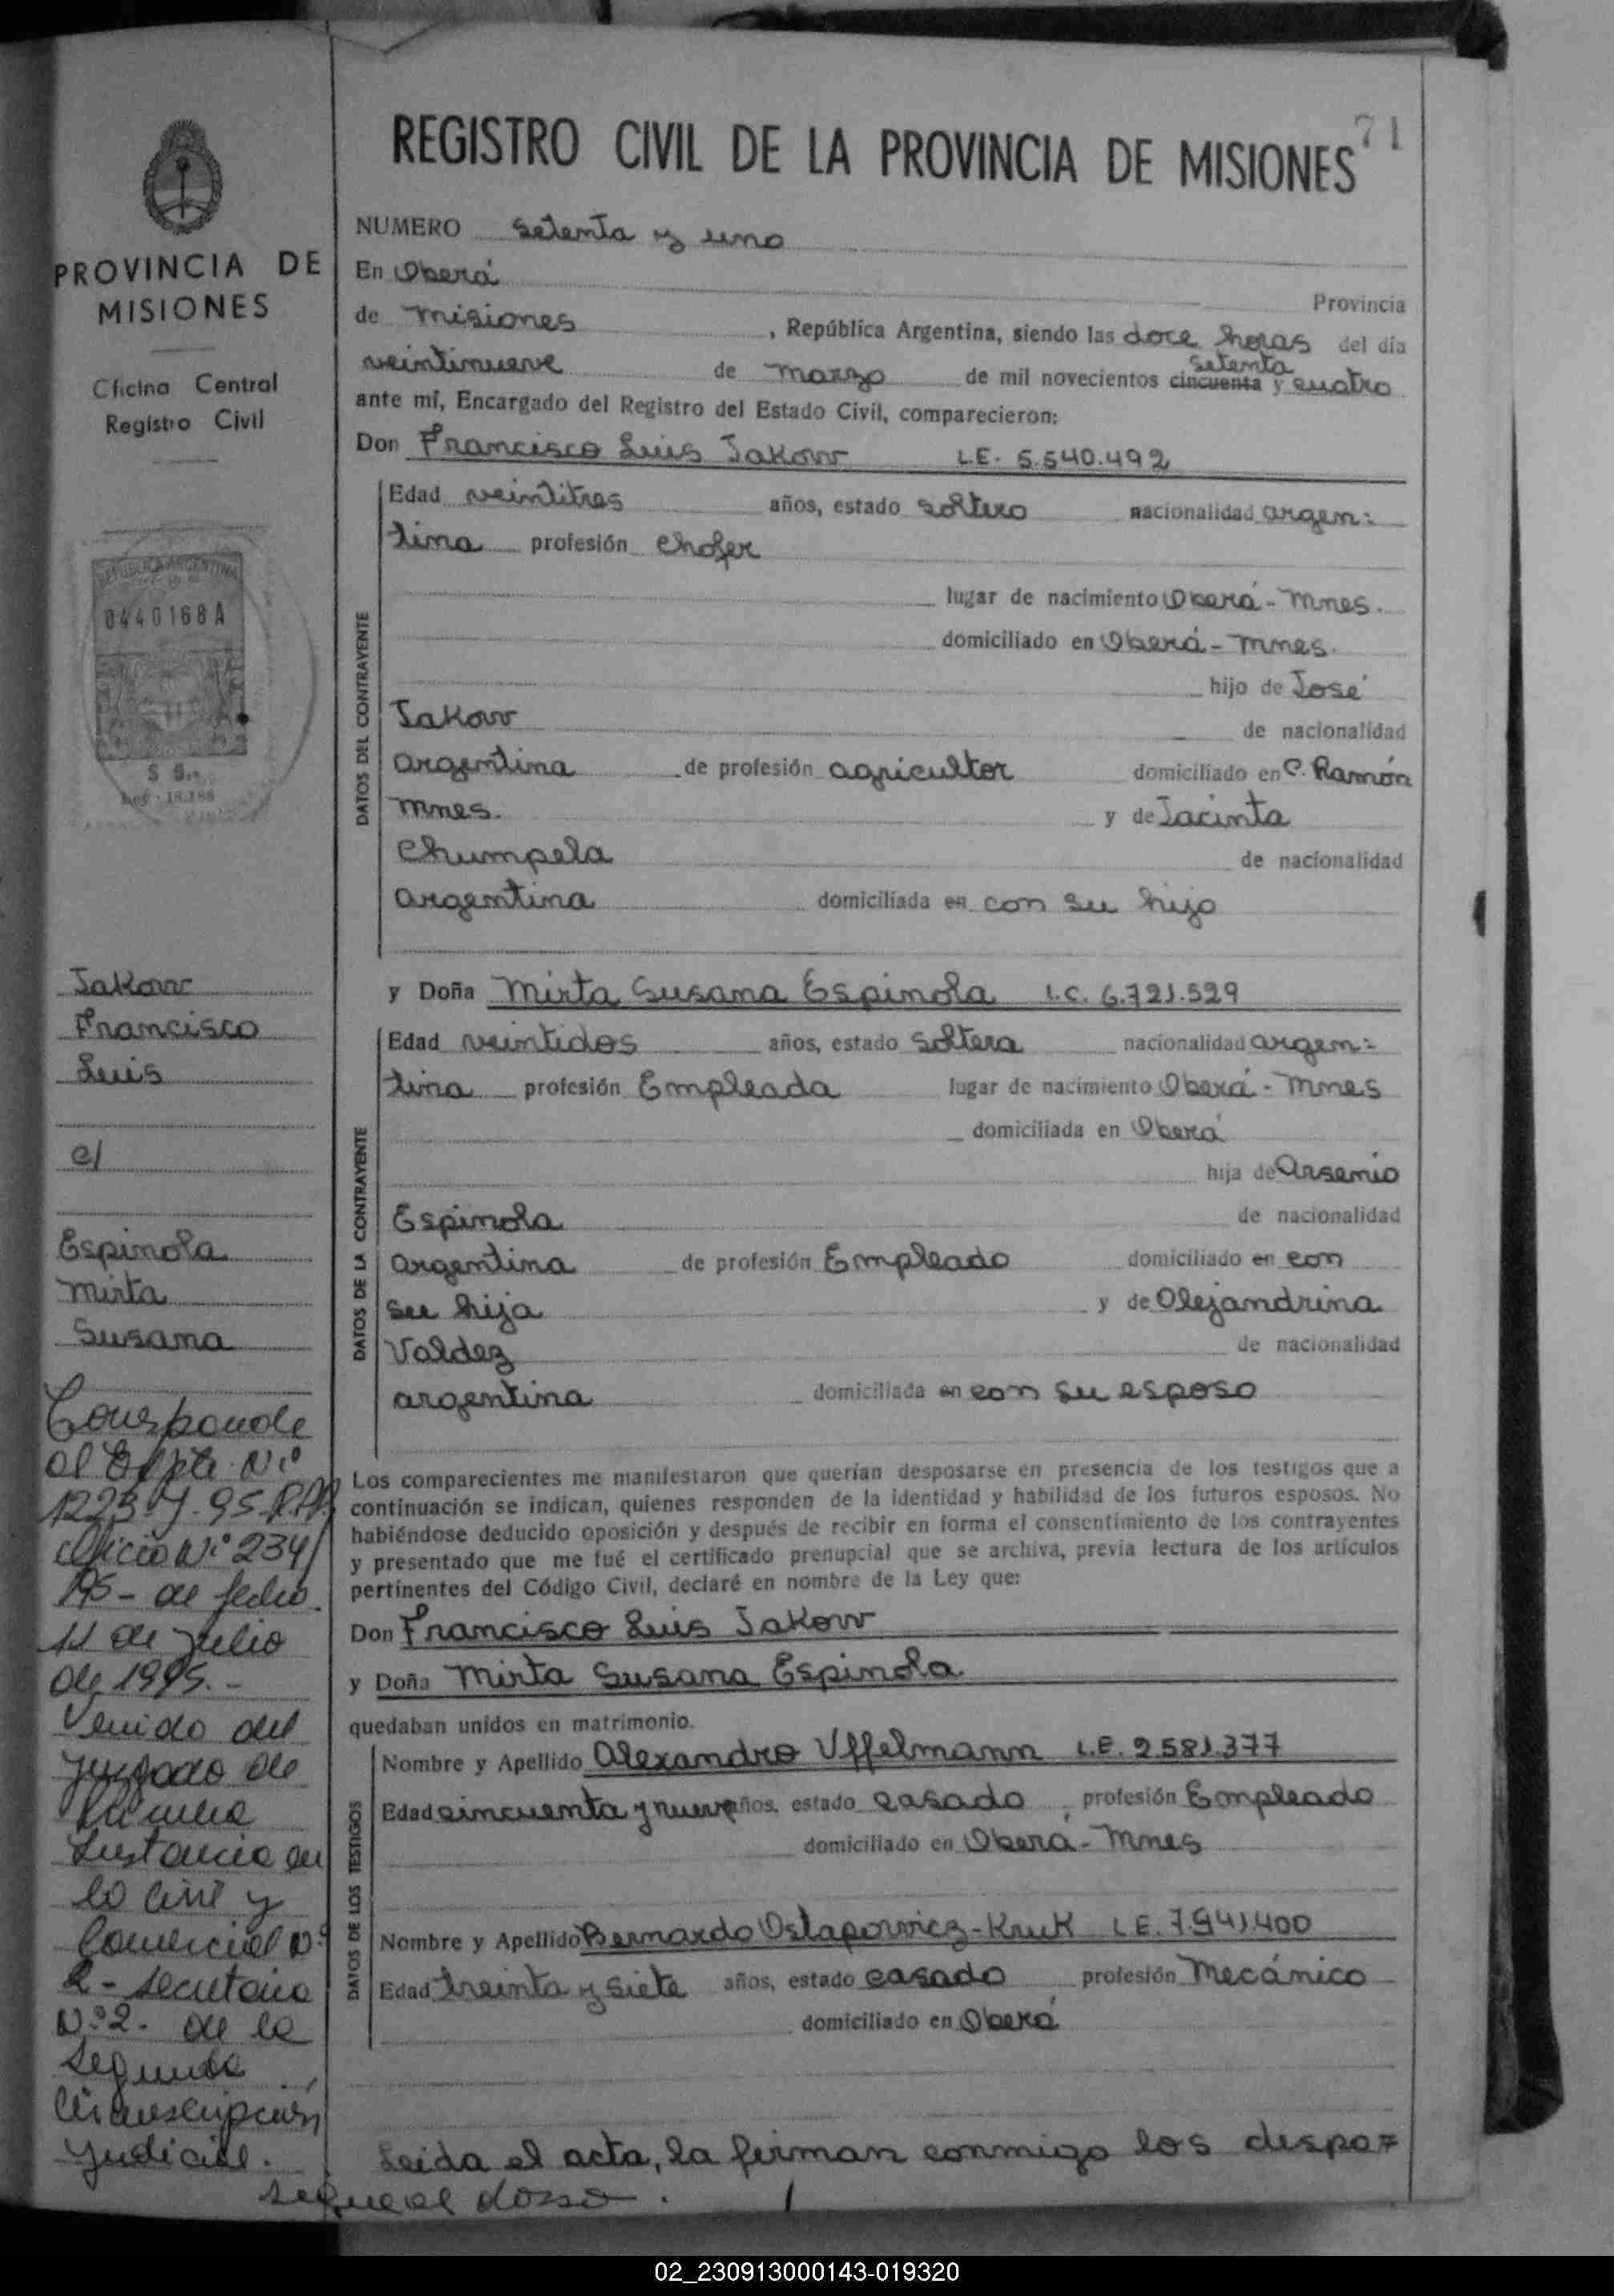 71
REGISTRO CIVIL DE LA PROVINCIA DE MISIONES
PROVINCIA DE
MISIONES
Oficina Central
Registro Civil
REPUBLICA ARGENTINA
0440168 A
$ 5.-
Ley - 18.188
Jakow
Francisco
Luis
c/
Espinola
Mirta
Susana
Corresponde
al Expte. Nº
Oficio Nº 234/
195- de fecha
11 de julio
de 1995.-
Venido del
Juzgado de
Primera
Instancia en
lo Civil y
Comercial Nº
2 - Secretaria
Nº 2 - de la
Segunda
Circunscripción
Judicial.
sigue al dorso.
NUMERO setenta y uno
En Oberá Provincia
de misiones, República Argentina, siendo las doce horas del día
setenta
veintinueve de marzo de mil novecientos cincuenta y cuatro
ante mí, Encargado del Registro del Estado Civil, comparecieron:
Don Francisco Luis Jakow L.E. 5.540.492
DATOS DEL CONTRAYENTE
Edad veintitres años, estado soltero nacionalidad argen=
tina profesión chofer
lugar de nacimiento Oberá - Mnes.
domiciliado en Oberá - Mnes.
hijo de José
Jakow de nacionalidad
argentina de profesión agricultor domiciliado en C. Ramón
Mnes. y de Jacinta
Chumpela de nacionalidad
argentina domiciliada en con su hijo
y Doña Mirta Susana Espinola L.C. 6.721.529
DATOS DE LA CONTRAYENTE
Edad veintidos años, estado soltera nacionalidad argen=
tina profesión Empleada lugar de nacimiento Oberá - Mnes
domiciliada en Oberá
hija de Arsenio
Espinola de nacionalidad
argentina de profesión Empleado domiciliado en con
su hija y de Alejandrina
Valdez de nacionalidad
argentina domiciliada en con su esposo
Los comparecientes me manifestaron que querían desposarse en presencia de los testigos que a
continuación se indican, quienes responden de la identidad y habilidad de los futuros esposos. No
habiéndose deducido oposición y después de recibir en forma el consentimiento de los contrayentes
y presentado que me fué el certificado prenupcial que se archiva, previa lectura de los artículos
pertinentes del Código Civil, declaré en nombre de la Ley que:
Don Francisco Luis Jakow
y Doña Mirta Susana Espinola
quedaban unidos en matrimonio.
DATOS DE LOS TESTIGOS
Nombre y Apellido Alexandro Uffelmann L.E. 2.581.377
Edad cincuenta y nueve años, estado casado, profesión Empleado
domiciliado en Oberá - Mnes
Nombre y Apellido Bernardo Ostapowicz - Kruk L.E. 7.541.400
Edad treinta y siete años, estado casado profesión Mecánico
domiciliado en Oberá
Leida el acta, la firman conmigo los despo=
02_230913000143-019320